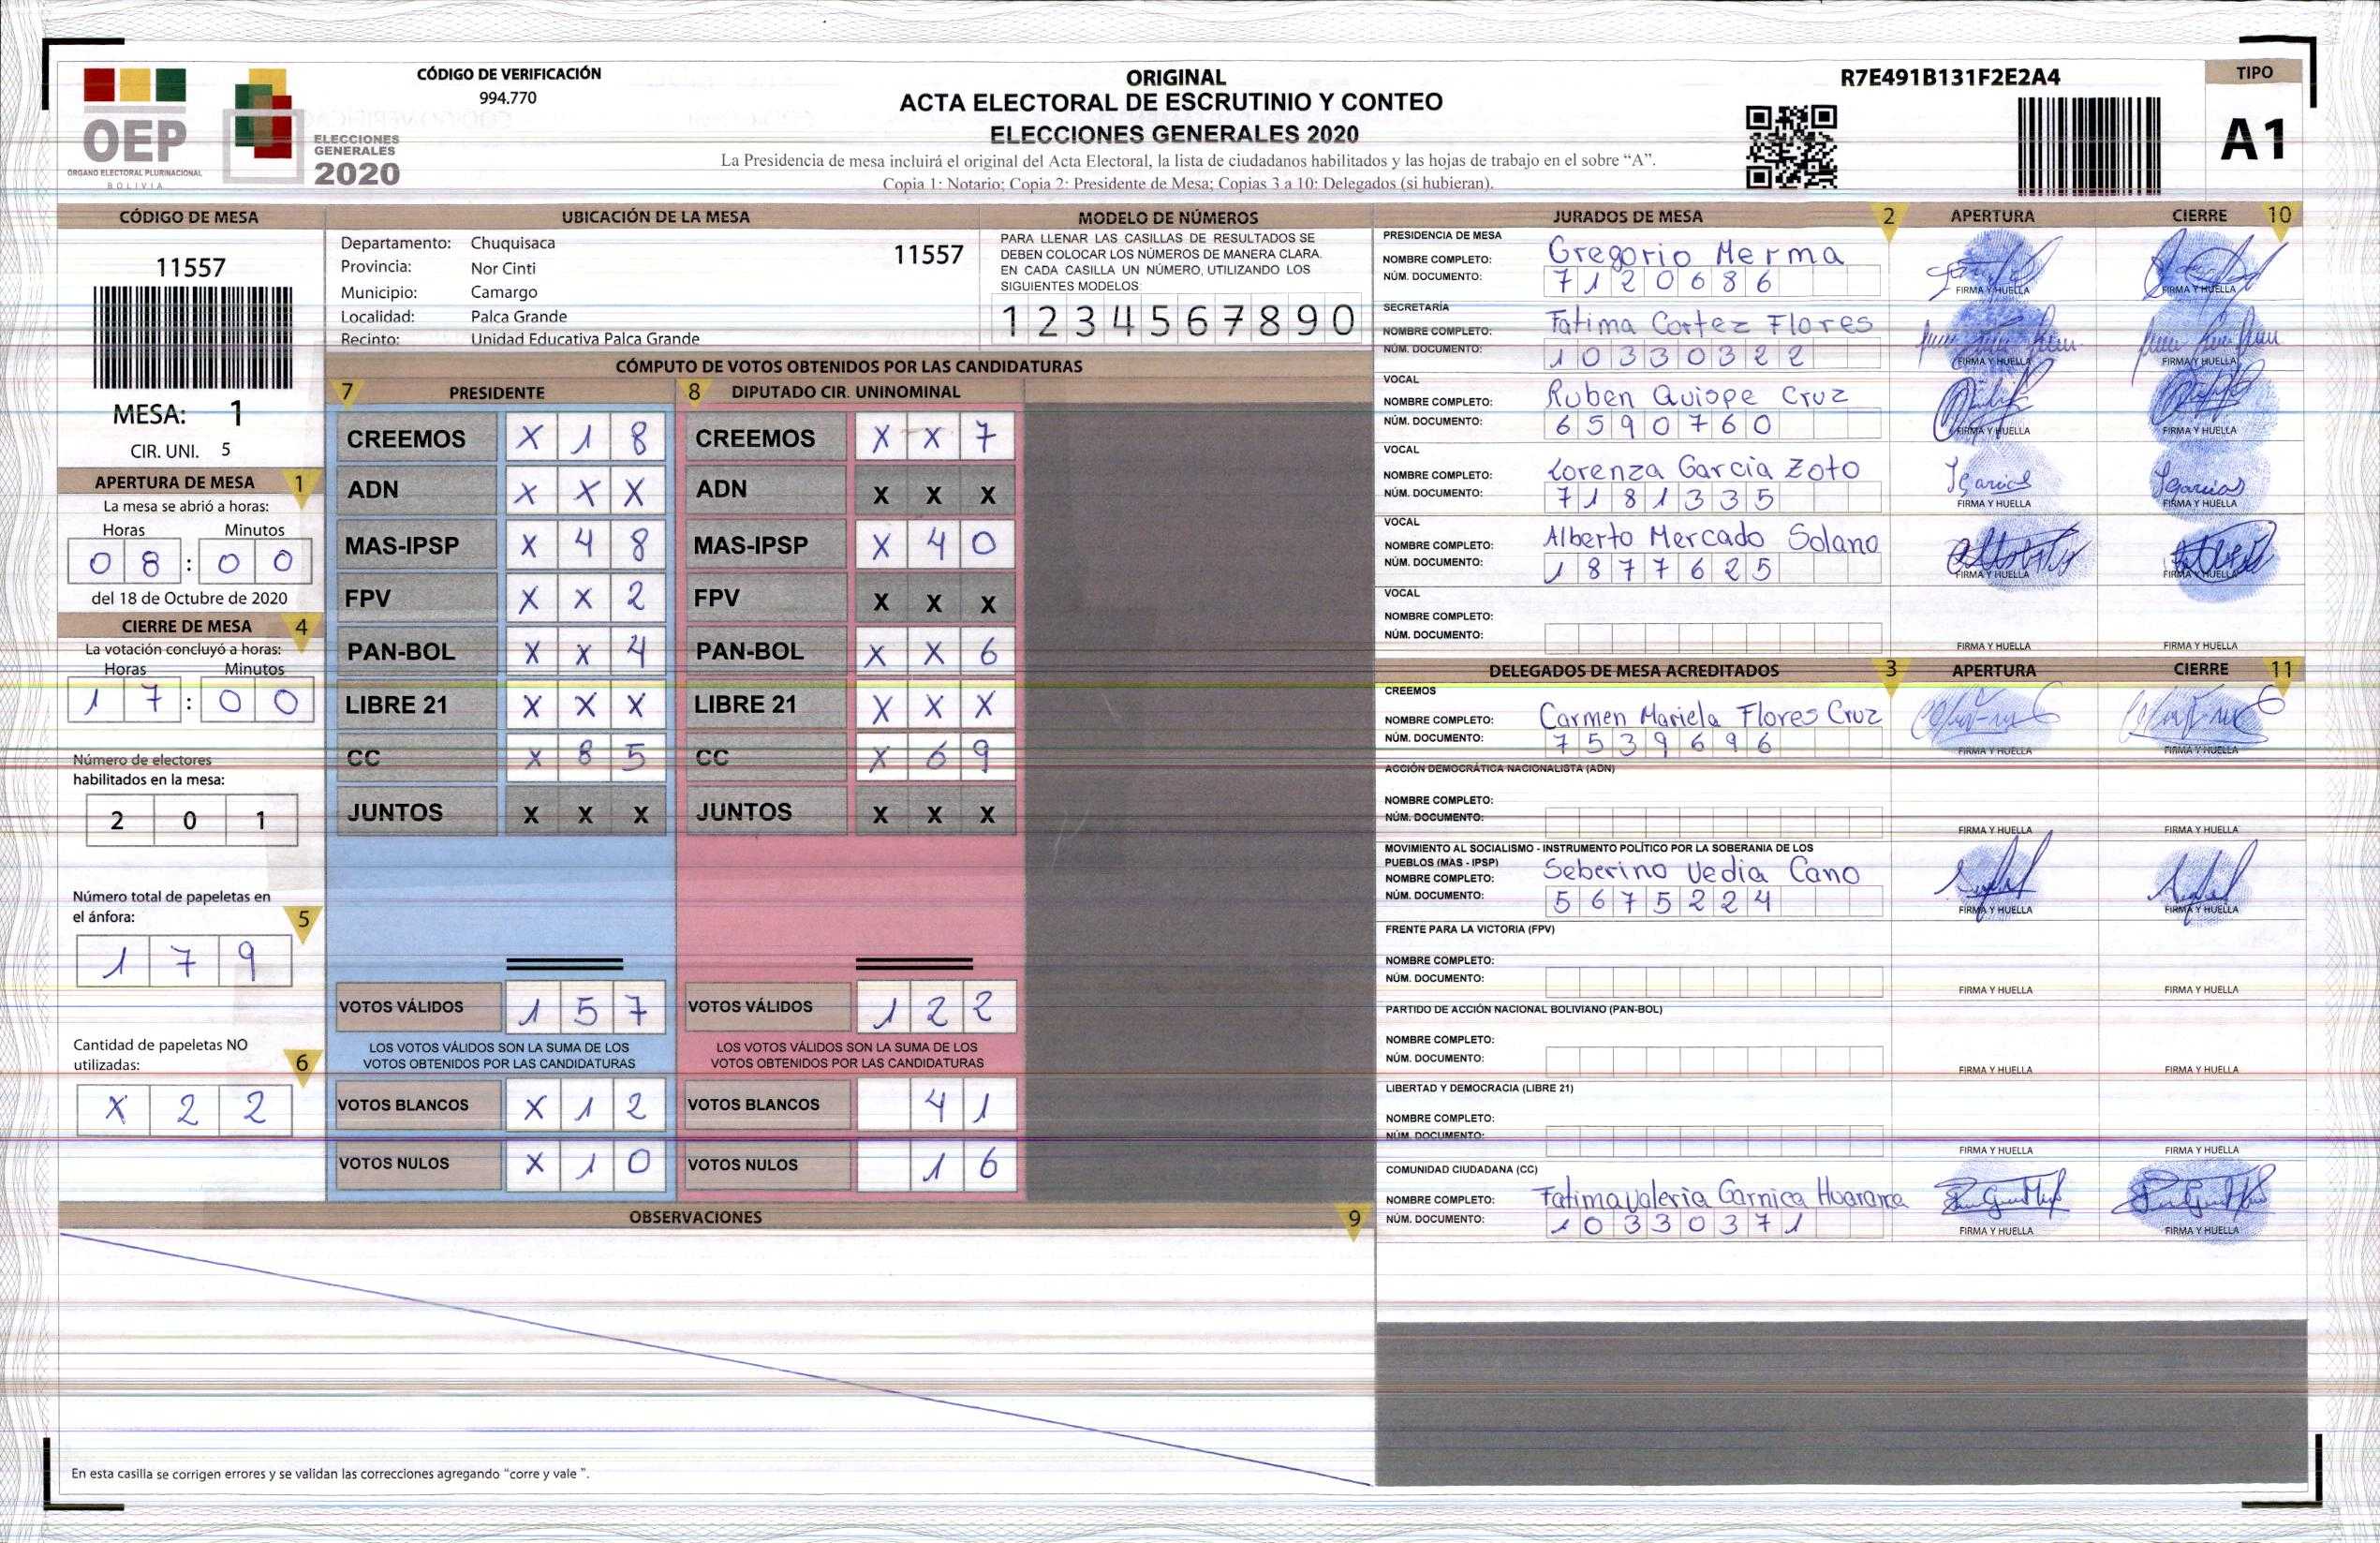 OEP
ÓRGANO ELECTORAL PLURINACIONAL
BOLIVIA
ELECCIONES
GENERALES
2020
CÓDIGO DE VERIFICACIÓN
994.770
ORIGINAL
ACTA ELECTORAL DE ESCRUTINIO Y CONTEO
ELECCIONES GENERALES 2020
La Presidencia de mesa incluirá el original del Acta Electoral, la lista de ciudadanos habilitados y las hojas de trabajo en el sobre “A”.
Copia 1: Notario; Copia 2: Presidente de Mesa; Copias 3 a 10: Delegados (si hubieran).
R7E491B131F2E2A4
TIPO
A1
CÓDIGO DE MESA
11557
MESA: 1
CIR. UNI. 5
APERTURA DE MESA 1
La mesa se abrió a horas:
Horas Minutos
0 8 : 0 0
del 18 de Octubre de 2020
CIERRE DE MESA 4
La votación concluyó a horas:
Horas Minutos
1 7 : 0 0
Número de electores
habilitados en la mesa:
2 0 1
Número total de papeletas en
el ánfora: 5
1 7 9
Cantidad de papeletas NO
utilizadas: 6
X 2 2
UBICACIÓN DE LA MESA
Departamento: Chuquisaca 11557
Provincia: Nor Cinti
Municipio: Camargo
Localidad: Palca Grande
Recinto: Unidad Educativa Palca Grande
MODELO DE NÚMEROS
PARA LLENAR LAS CASILLAS DE RESULTADOS SE
DEBEN COLOCAR LOS NÚMEROS DE MANERA CLARA.
EN CADA CASILLA UN NÚMERO, UTILIZANDO LOS
SIGUIENTES MODELOS:
1 2 3 4 5 6 7 8 9 0
CÓMPUTO DE VOTOS OBTENIDOS POR LAS CANDIDATURAS
7 PRESIDENTE 8 DIPUTADO CIR. UNINOMINAL
CREEMOS X 1 8 CREEMOS X X 7
ADN X X X ADN X X X
MAS-IPSP X 4 8 MAS-IPSP X 4 0
FPV X X 2 FPV X X X
PAN-BOL X X 4 PAN-BOL X X 6
LIBRE 21 X X X LIBRE 21 X X X
CC X 8 5 CC X 6 9
JUNTOS X X X JUNTOS X X X
VOTOS VÁLIDOS 1 5 7 VOTOS VÁLIDOS 1 2 2
LOS VOTOS VÁLIDOS SON LA SUMA DE LOS LOS VOTOS VÁLIDOS SON LA SUMA DE LOS
VOTOS OBTENIDOS POR LAS CANDIDATURAS VOTOS OBTENIDOS POR LAS CANDIDATURAS
VOTOS BLANCOS X 1 2 VOTOS BLANCOS 4 1
VOTOS NULOS X 1 0 VOTOS NULOS 1 6
OBSERVACIONES 9
En esta casilla se corrigen errores y se validan las correcciones agregando “corre y vale ”.
JURADOS DE MESA 2 APERTURA CIERRE 10
PRESIDENCIA DE MESA
NOMBRE COMPLETO: Gregorio Merma
NÚM. DOCUMENTO: 7 1 2 0 6 8 6
FIRMA Y HUELLA FIRMA Y HUELLA
SECRETARÍA
NOMBRE COMPLETO: Fatima Cortez Flores
NÚM. DOCUMENTO: 1 0 3 3 0 3 2 2
FIRMA Y HUELLA FIRMA Y HUELLA
VOCAL
NOMBRE COMPLETO: Ruben Quispe Cruz
NÚM. DOCUMENTO: 6 5 9 0 7 6 0
FIRMA Y HUELLA FIRMA Y HUELLA
VOCAL
NOMBRE COMPLETO: Lorenza Garcia Zoto
NÚM. DOCUMENTO: 7 1 8 1 3 3 5
FIRMA Y HUELLA FIRMA Y HUELLA
VOCAL
NOMBRE COMPLETO: Alberto Mercado Solano
NÚM. DOCUMENTO: 1 8 7 7 6 2 5
FIRMA Y HUELLA FIRMA Y HUELLA
VOCAL
NOMBRE COMPLETO:
NÚM. DOCUMENTO:
FIRMA Y HUELLA FIRMA Y HUELLA
DELEGADOS DE MESA ACREDITADOS 3 APERTURA CIERRE 11
CREEMOS
NOMBRE COMPLETO: Carmen Mariela Flores Cruz
NÚM. DOCUMENTO: 7 5 3 9 6 9 6
FIRMA Y HUELLA FIRMA Y HUELLA
ACCIÓN DEMOCRÁTICA NACIONALISTA (ADN)
NOMBRE COMPLETO:
NÚM. DOCUMENTO:
FIRMA Y HUELLA FIRMA Y HUELLA
MOVIMIENTO AL SOCIALISMO - INSTRUMENTO POLÍTICO POR LA SOBERANIA DE LOS
PUEBLOS (MAS - IPSP)
NOMBRE COMPLETO: Seberino Vedia Cano
NÚM. DOCUMENTO: 5 6 7 5 2 2 4
FIRMA Y HUELLA FIRMA Y HUELLA
FRENTE PARA LA VICTORIA (FPV)
NOMBRE COMPLETO:
NÚM. DOCUMENTO:
FIRMA Y HUELLA FIRMA Y HUELLA
PARTIDO DE ACCIÓN NACIONAL BOLIVIANO (PAN-BOL)
NOMBRE COMPLETO:
NÚM. DOCUMENTO:
FIRMA Y HUELLA FIRMA Y HUELLA
LIBERTAD Y DEMOCRACIA (LIBRE 21)
NOMBRE COMPLETO:
NÚM. DOCUMENTO:
FIRMA Y HUELLA FIRMA Y HUELLA
COMUNIDAD CIUDADANA (CC)
NOMBRE COMPLETO: Fatima Valeria Garnica
NÚM. DOCUMENTO: 1 0 3 3 0 3 7 1
FIRMA Y HUELLA FIRMA Y HUELLA